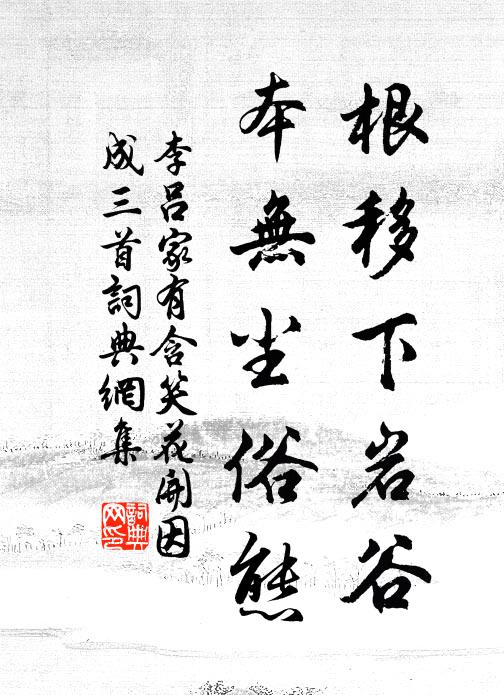 根移下岩谷
本無尘俗態
李吕家有含笑花開因
成三首詞典網集
詞典
网印